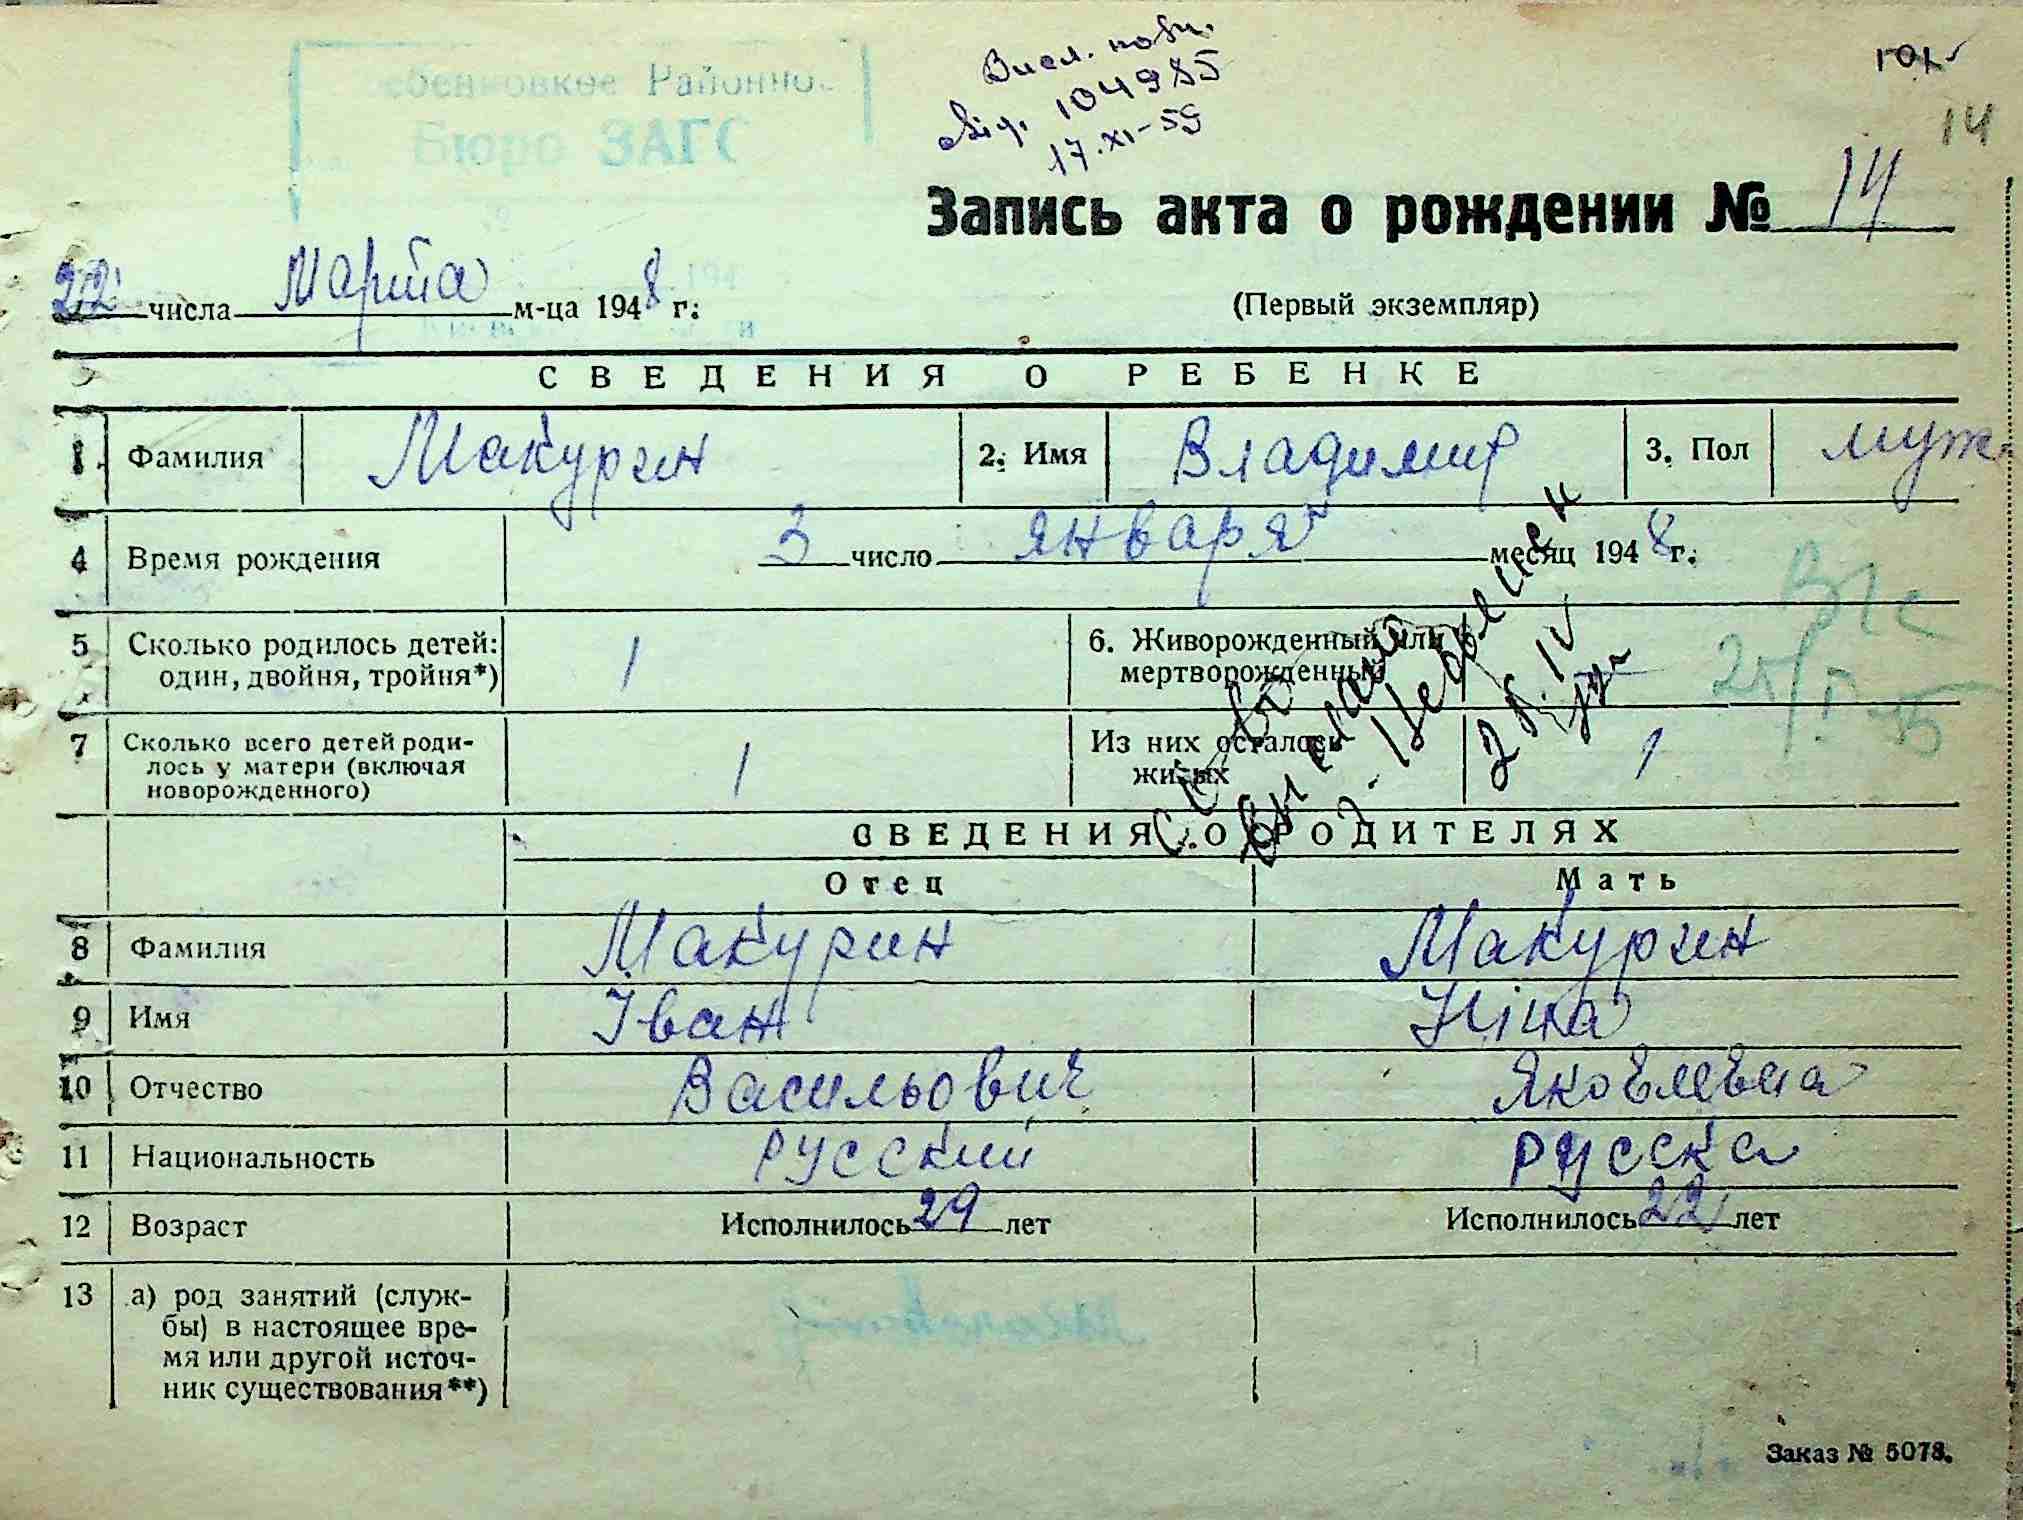 Висл. повт.
104985
17.XI-59
14
Районно
Бюро ЗАГС
Запись акта о рождении № 14
22 числа Марта м-ца 1948 г.
(Первый экземпляр)
СВЕДЕНИЯ О РЕБЕНКЕ
1. Фамилия Макурин 2. Имя Владимир 3. Пол муж.
4 Время рождения 3 число января месяц 1948 г.
5 Сколько родилось детей: один, двойня, тройня*) 1 6. Живорожденный или мертворожденный
7 Сколько всего детей родилось у матери (включая новорожденного) 1 Из них осталось живых 1
СВЕДЕНИЯ О РОДИТЕЛЯХ
Отец Мать
8 Фамилия Макурин Макурин
9 Имя Іван Ніна
10 Отчество Васильович Яковлевна
11 Национальность русский русска
12 Возраст Исполнилось 29 лет Исполнилось 22 лет
13 а) род занятий (служ-
бы) в настоящее вре-
мя или другой источ-
ник существования**)
Заказ № 5078.